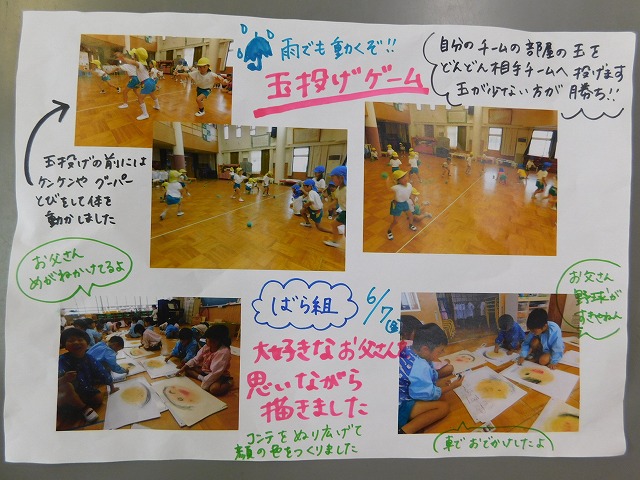 雨でも動くぞ!!
玉投げゲーム
自分のチームの部屋の玉を
どんどん相手チームへ投げます
玉が少ない方が勝ち!!
玉投げの前には
ケンケンや グーパー
とびをして体を
動かしました
お父さん
めがねかけてるよ
ばら組
6/7(金)
大好きなお父さんを
思いながら
描きました
コンテをぬり広げて
顔の色をつくりました
お父さん
野球が
すきやねん
車でおでかけしたよ